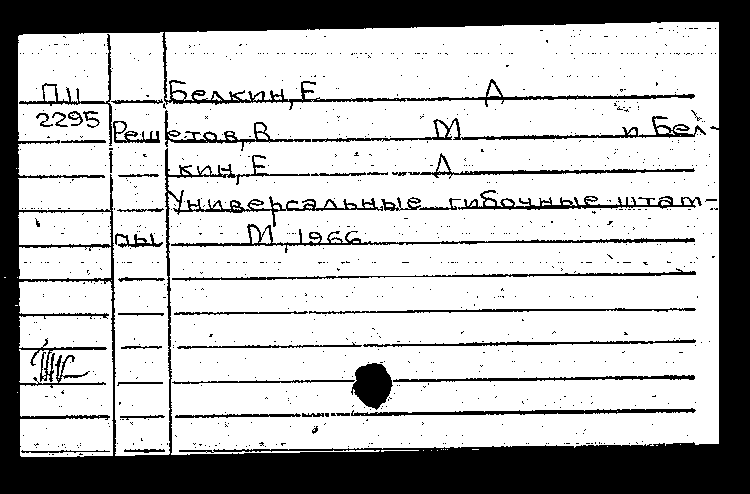 П11 Белкин, Е Л
2295 Решетов, В М и Бел-
кин, Е Л
Универсальные гибочные штам-
пы М, 1966